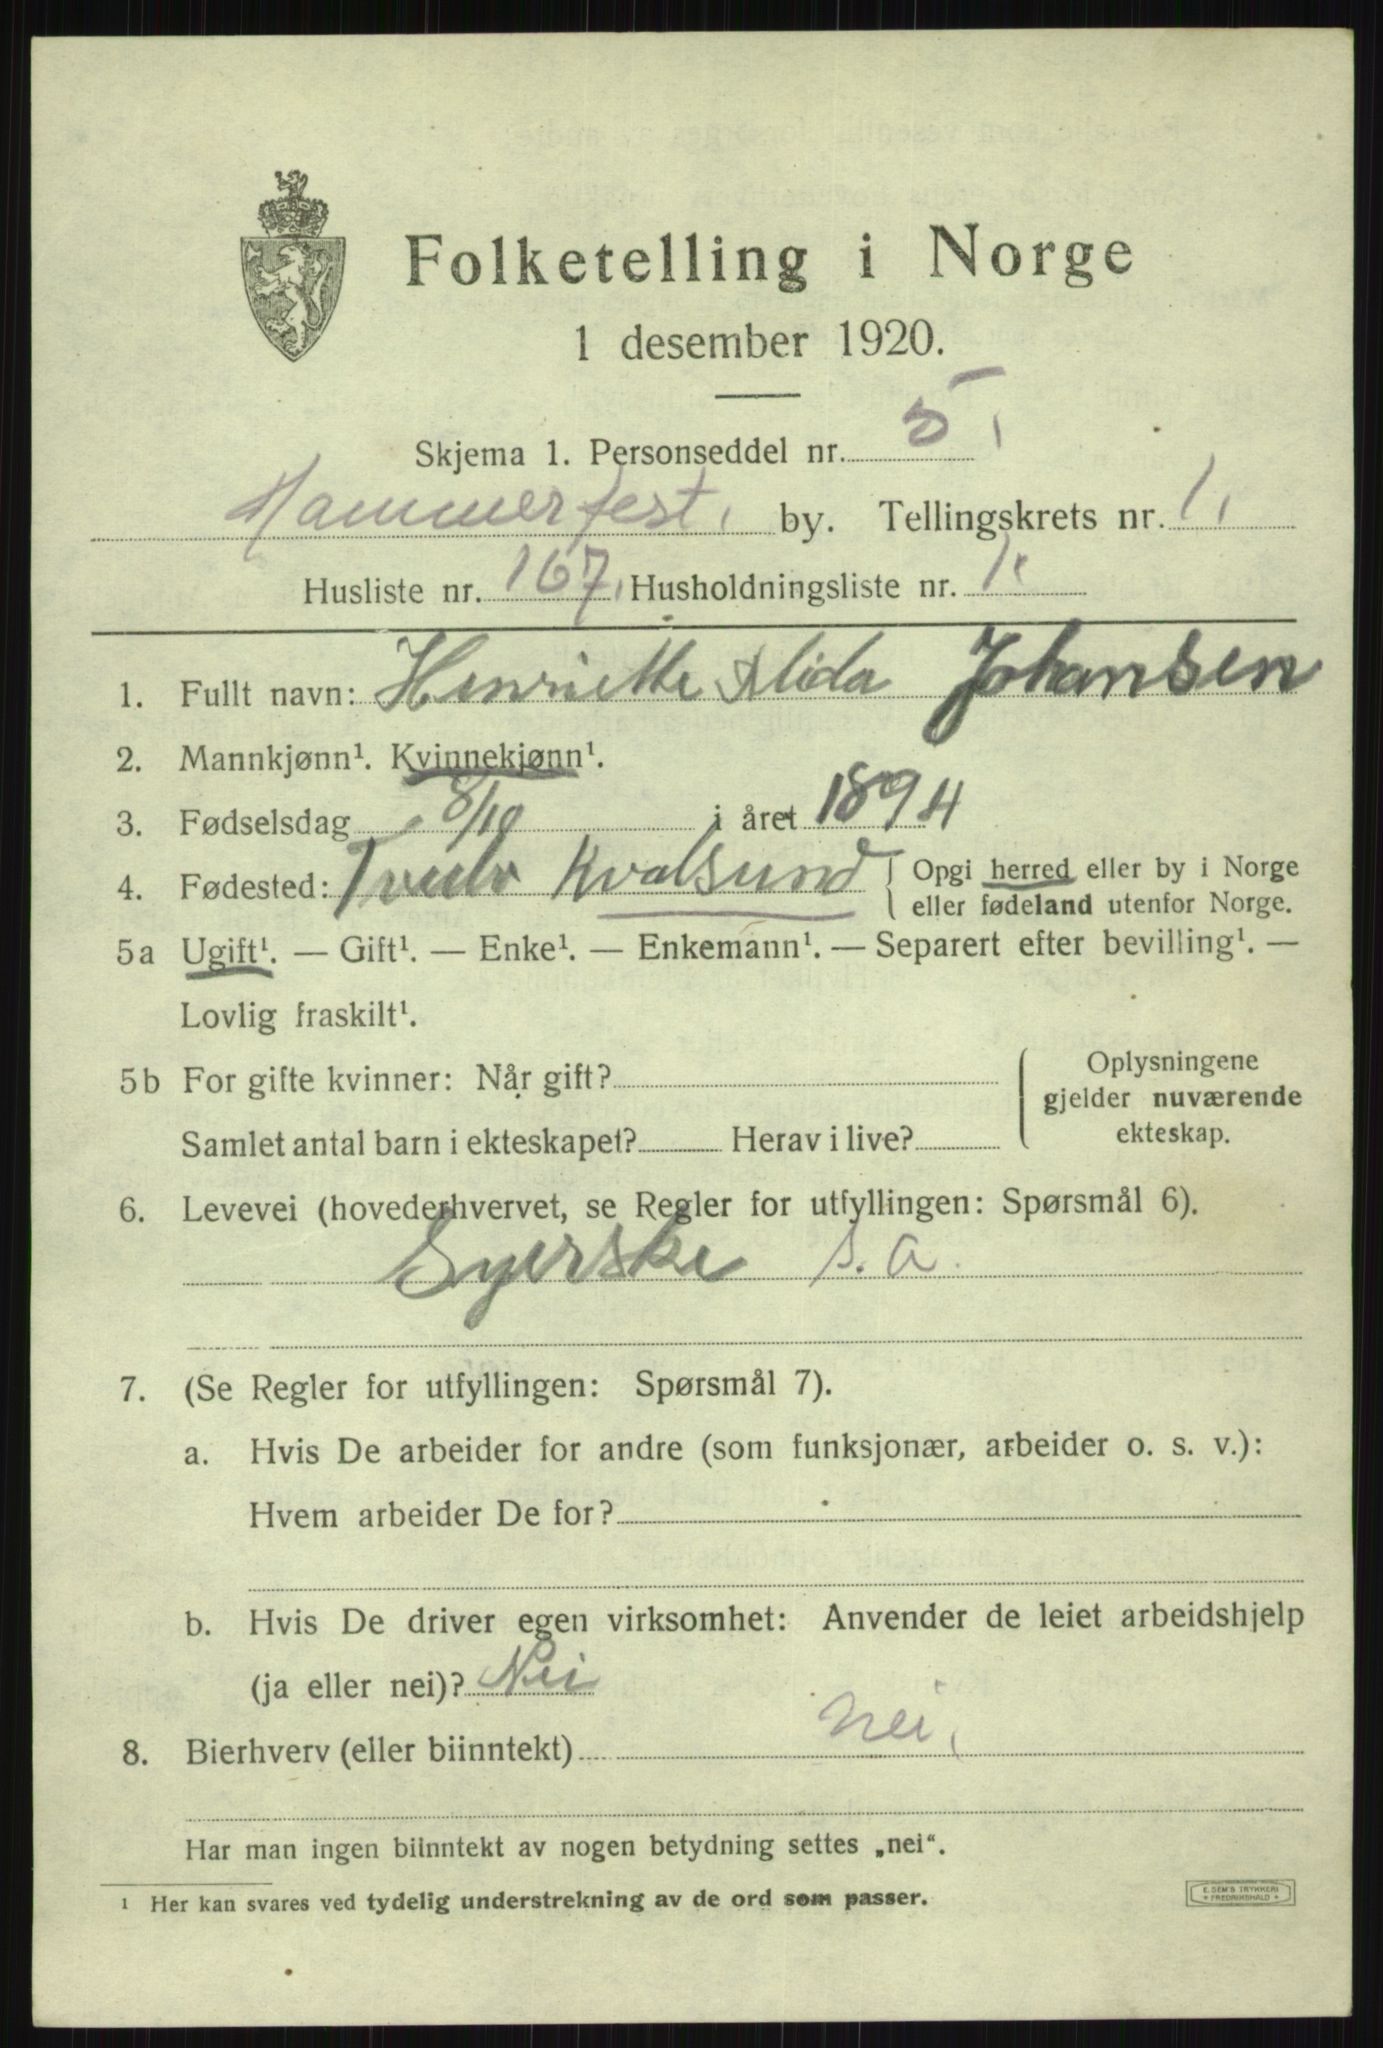 Folketelling i Norge
1 desember 1920.
Skjema 1. Personseddel nr. 5,
Hammerfest, by. Tellingskrets nr. 1,
Husliste nr. 167, Husholdningsliste nr. 1.
1. Fullt navn: Henriette Alida Johansen
2. Mannkjønn¹. Kvinnekjønn¹.
3. Fødselsdag 8/10 i året 1894
4. Fødested: Kvalsund { Opgi herred eller by i Norge
eller fødeland utenfor Norge.
5a Ugift¹. — Gift¹. — Enke¹. — Enkemann¹. — Separert efter bevilling¹. —
Lovlig fraskilt¹.
5b For gifte kvinner: Når gift?
Samlet antal barn i ekteskapet? Herav i live?
{ Oplysningene
gjelder nuværende
ekteskap.
6. Levevei (hovederhvervet, se Regler for utfyllingen: Spørsmål 6).
Syerske s. a.
7. (Se Regler for utfyllingen: Spørsmål 7).
a. Hvis De arbeider for andre (som funksjonær, arbeider o. s. v.):
Hvem arbeider De for?
b. Hvis De driver egen virksomhet: Anvender de leiet arbeidshjelp
(ja eller nei)? Nei
8. Bierhverv (eller biinntekt) Nei,
Har man ingen biinntekt av nogen betydning settes „nei“.
¹ Her kan svares ved tydelig understrekning av de ord som passer.
E. SEM'S TRYKKERI
* FREDRIKSHALD *